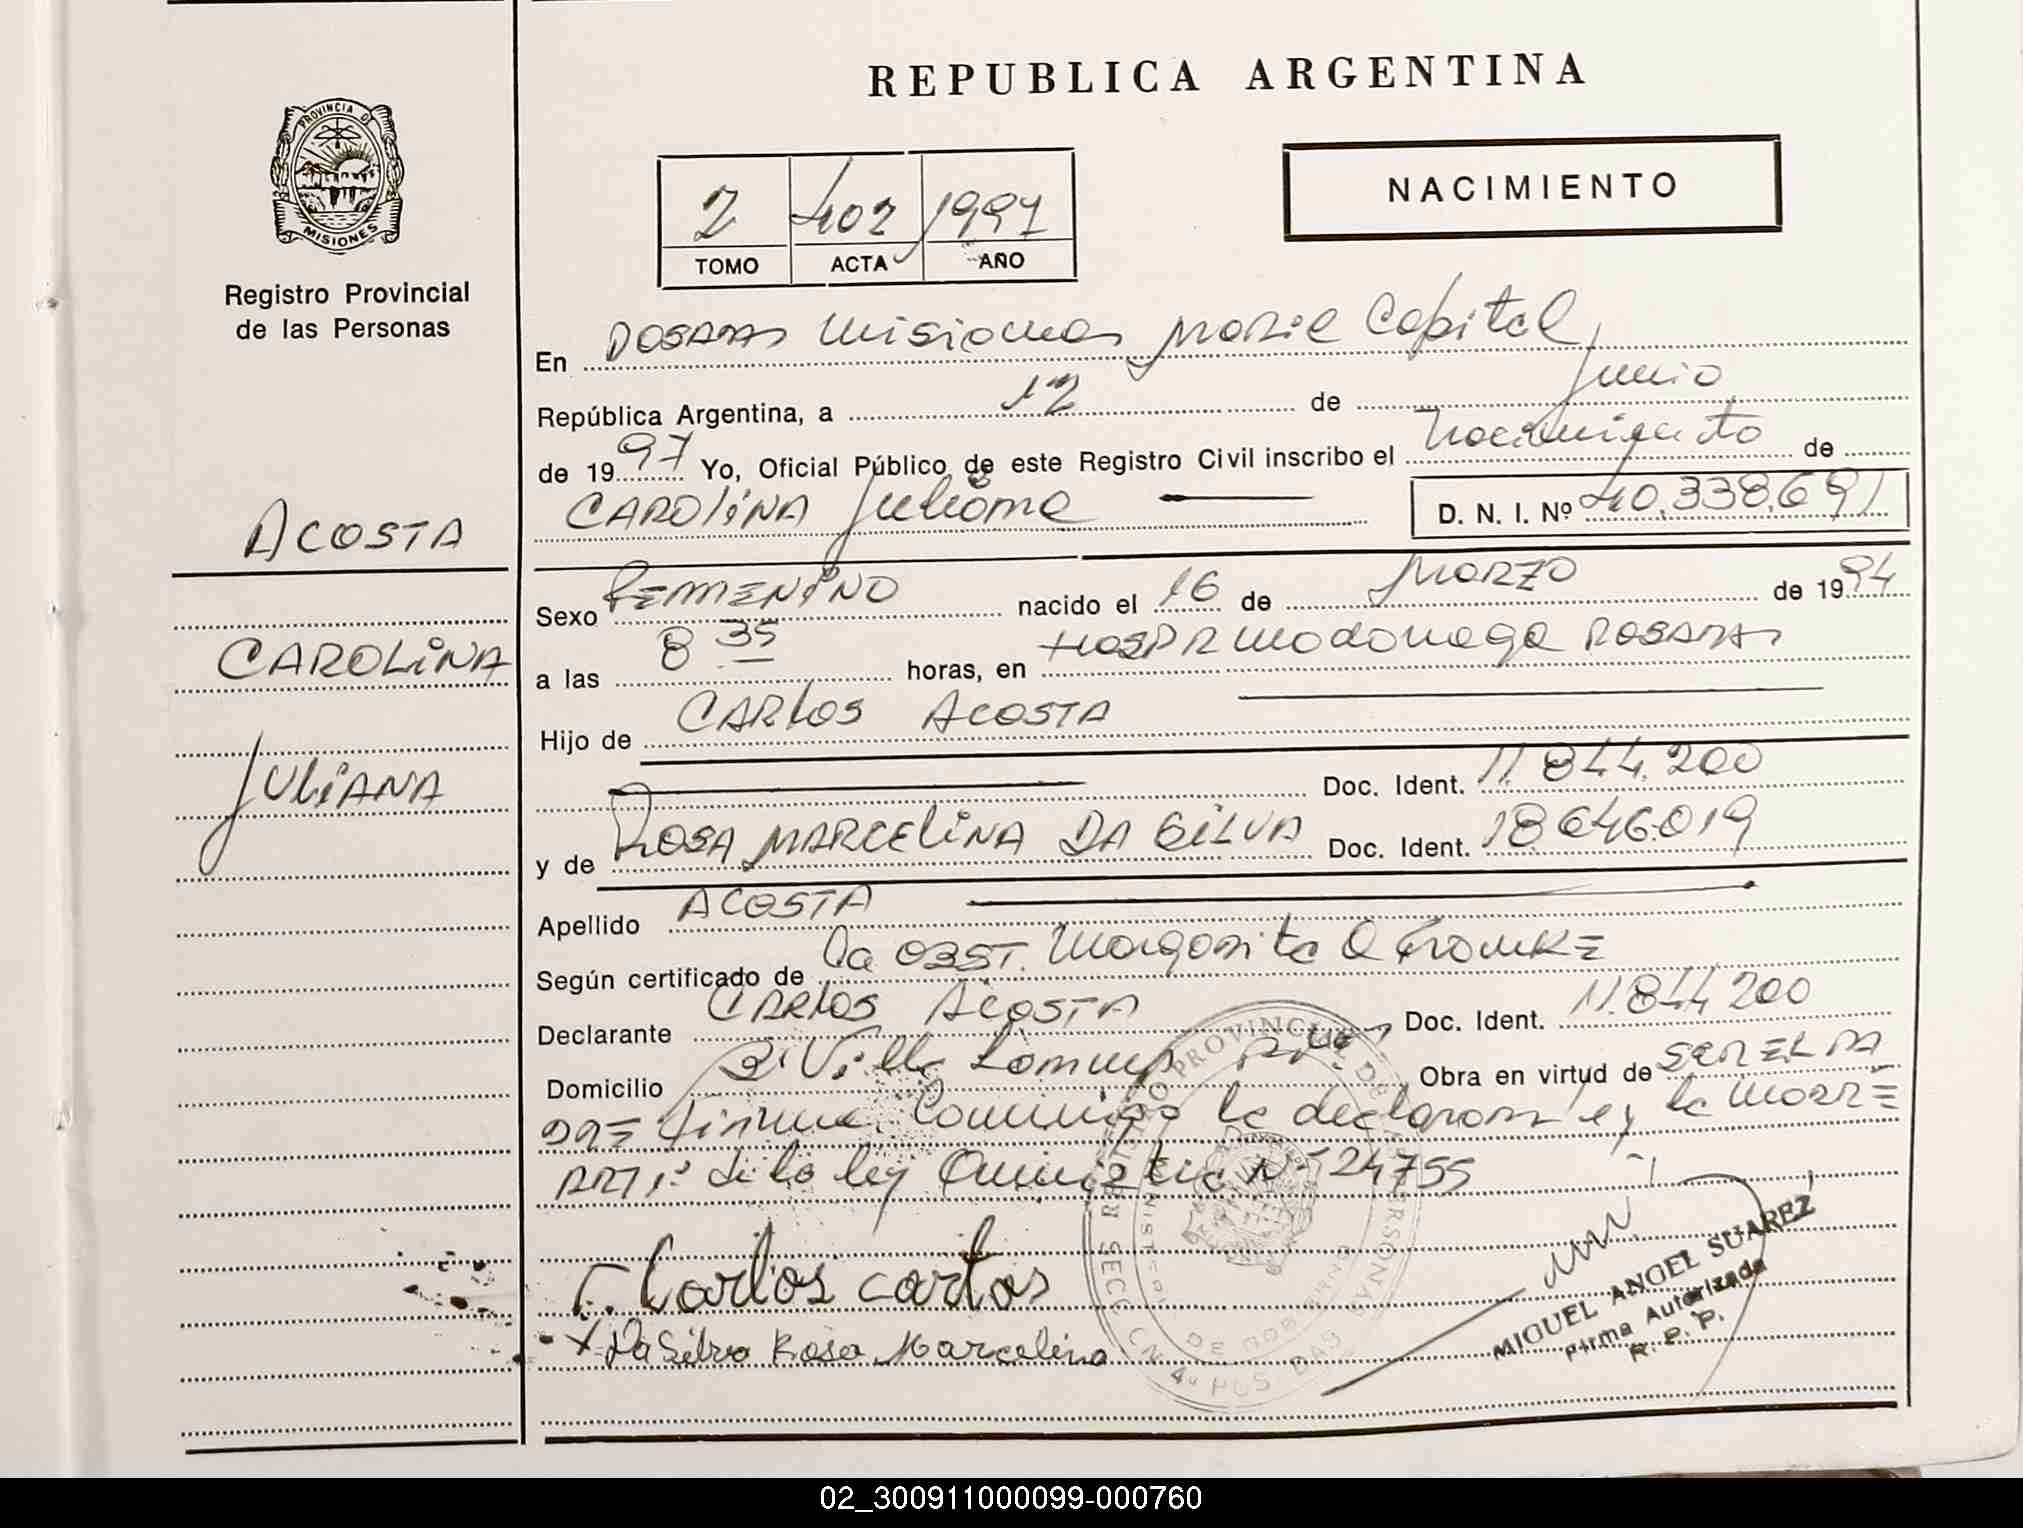 REPUBLICA ARGENTINA
PROVINCIA DE
MISIONES
Registro Provincial
de las Personas
NACIMIENTO
2 402 1997
TOMO ACTA AÑO
En POSADAS Misiones Capital
República Argentina, a 12 de Junio
de 1997 Yo, Oficial Público de este Registro Civil inscribo el Nacimiento de
CAROLINA Juliana D. N. I. Nº 40.338.691
ACOSTA
CAROLINA
JULIANA
Sexo FEMENINO nacido el 16 de MARZO de 1994
a las 8 35 horas, en HOSP R Madariaga POSADAS
Hijo de CARLOS ACOSTA
Doc. Ident. 11.844.200
y de ROSA MARCELINA DA SILVA Doc. Ident. 18.646.019
Apellido ACOSTA
Según certificado de La OBST. Margarita
Declarante CARLOS ACOSTA Doc. Ident. 11.844.200
Domicilio Bº Villa Obra en virtud de SER EL PA
DRE firma Conmigo la declarante y la MADRE
ART 1º de la ley Amnistia Nº 24755
Carlos
Da Silva Rosa Marcelina
REGISTRO PROVINCIAL DE LAS PERSONAS
MINISTERIO DE GOBIERNO
MIGUEL ANGEL SUAREZ
Firma Autorizada
R. P. P.
02_300911000099-000760